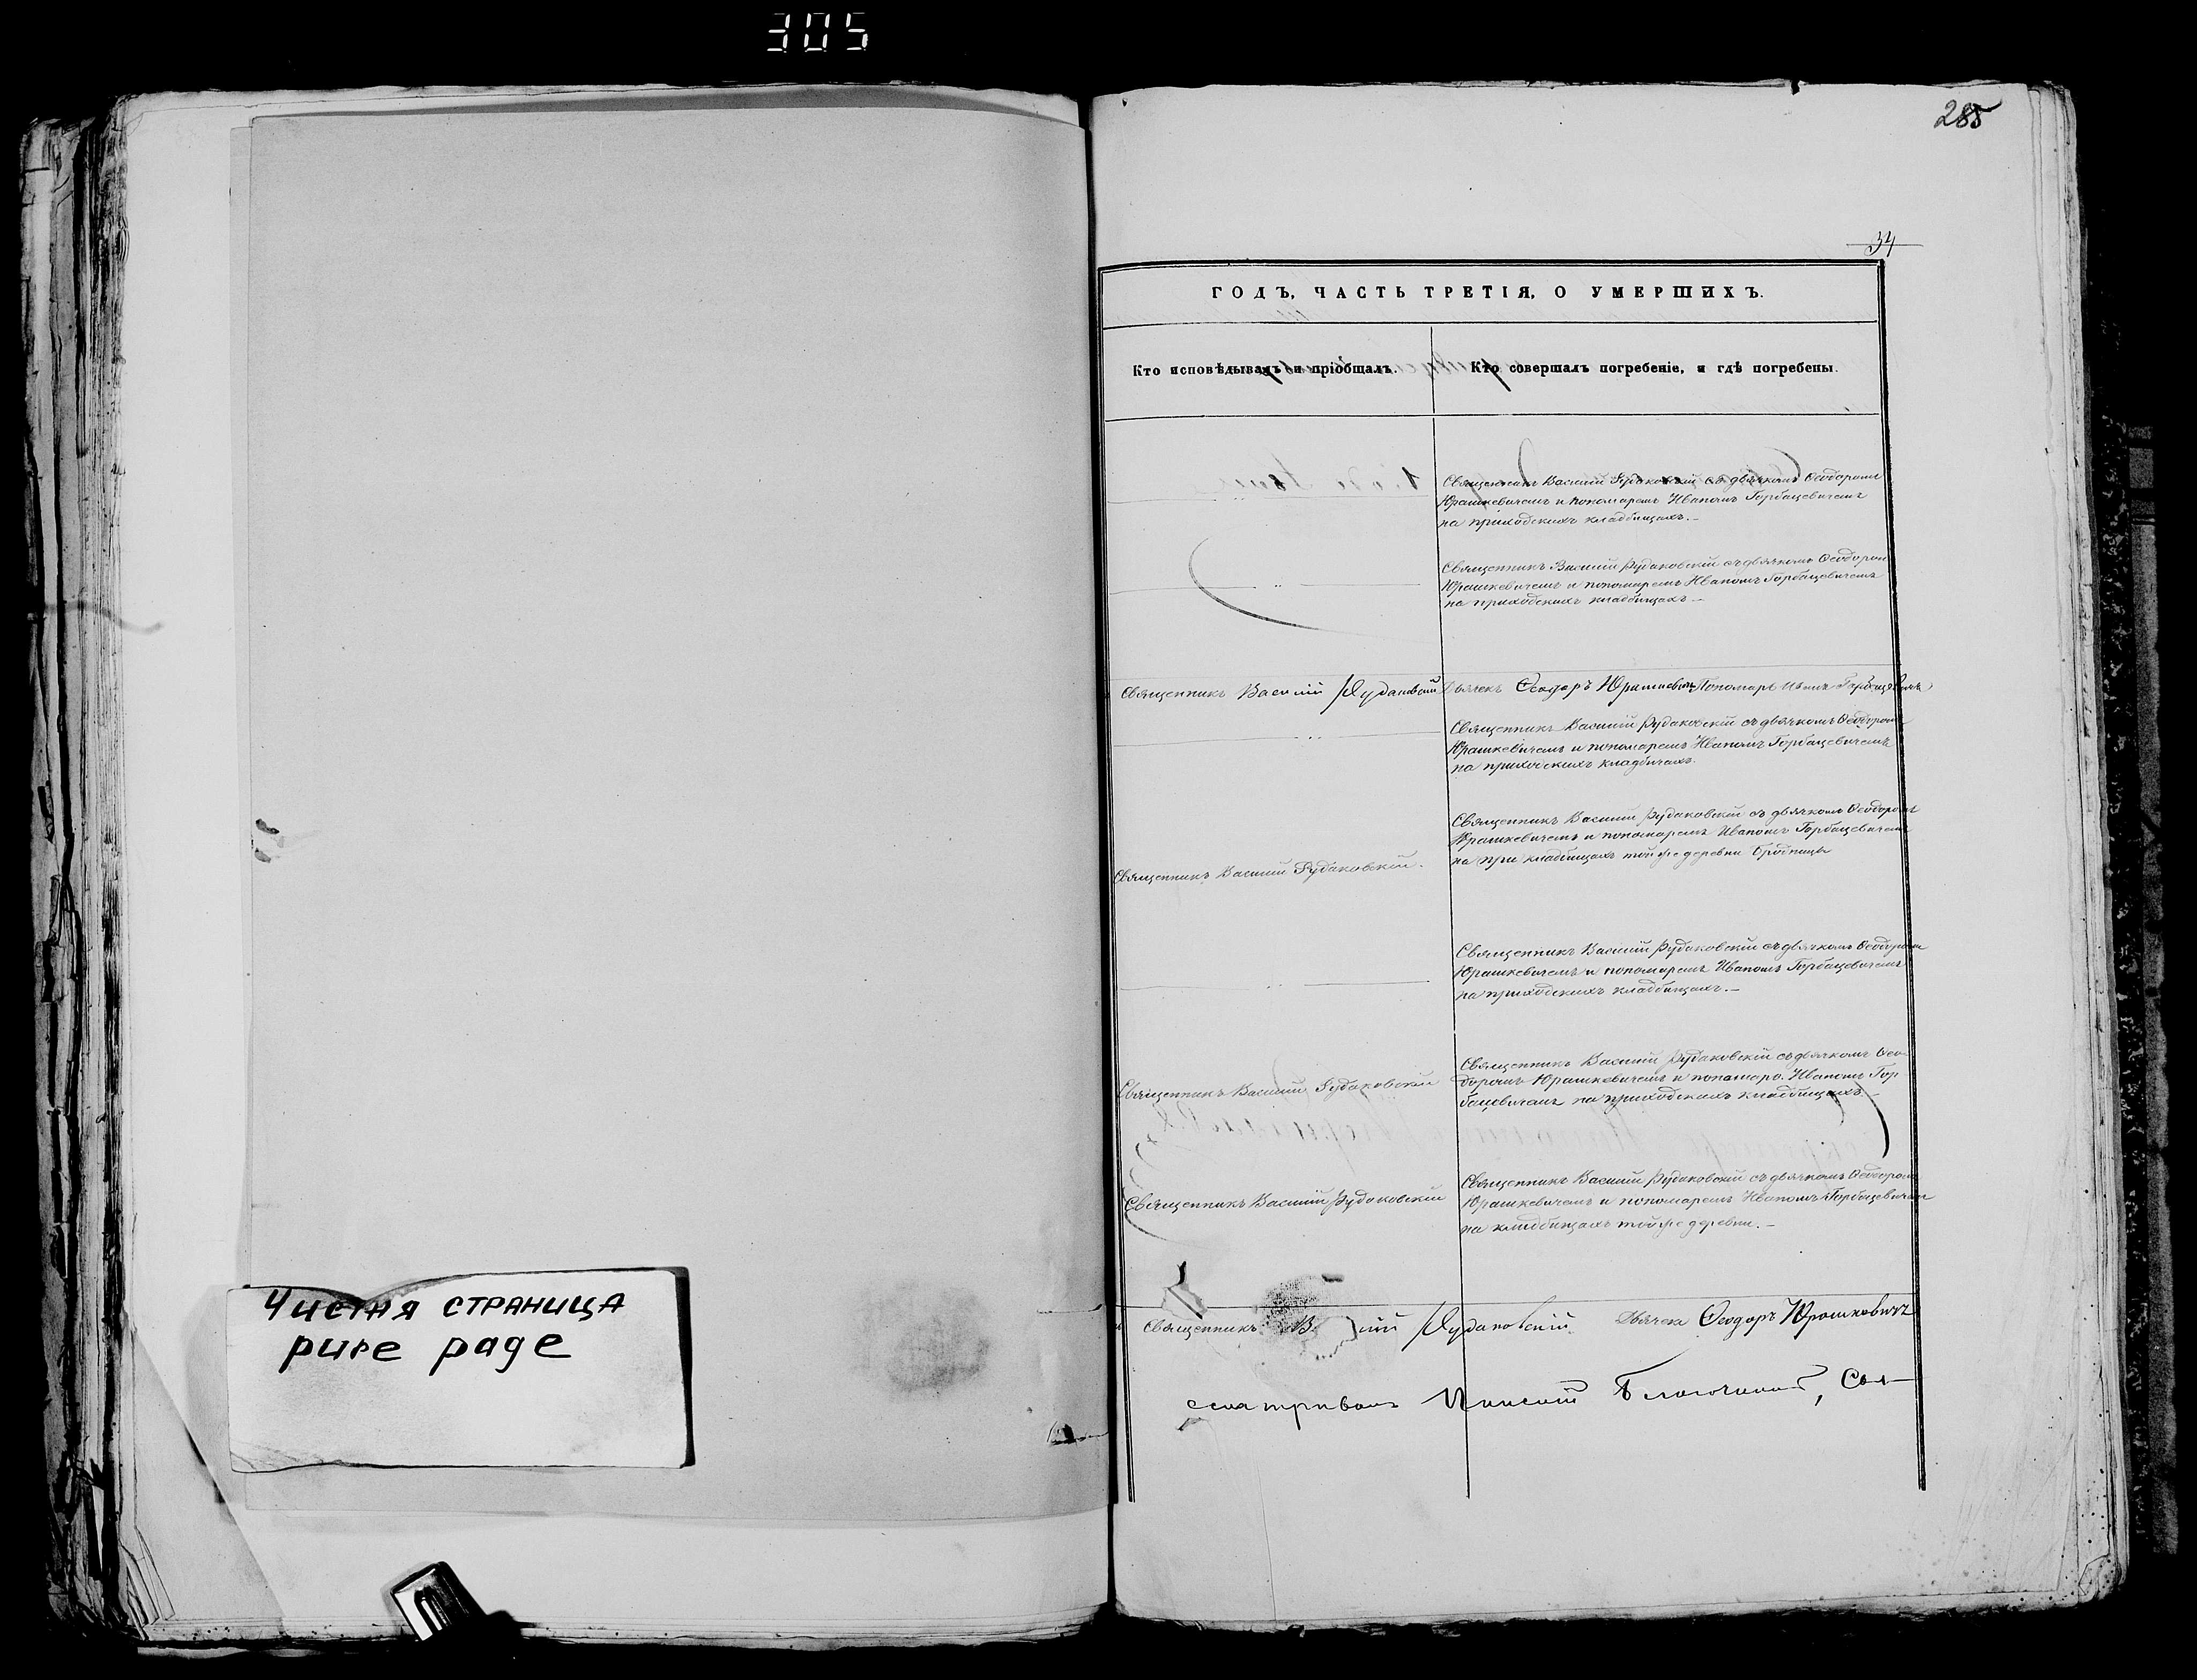 305
285
34
ГОДЪ, ЧАСТЬ ТРЕТІЯ, О УМЕРШИХЪ.
Кто исповѣдывалъ и пріобщалъ.
Кто совершалъ погребеніе, и гдѣ погребены.
Священникъ Василій Рудаковскій съ дьячкомъ Ѳеодоромъ
Юрашкевичемъ и пономаремъ Иваномъ Горбацевичемъ
на приходскихъ кладбищахъ.—
Священникъ Василій Рудаковскій съ дьячкомъ Ѳеодором
Юрашкевичемъ и пономаремъ Иваномъ Горбацевичемъ
на приходскихъ кладбищахъ—
Священникъ Василій Рудаковскій Дьячекъ Ѳеодоръ Юрашкевичъ Пономарь Иванъ Горбацевичъ
Священникъ Василій Рудаковскій съ дьячкомъ Ѳеодором
Юрашкевичемъ и пономаремъ Иваномъ Горбацевичемъ
на приходскихъ кладбичахъ.
Священникъ Василій Рудаковскій.
Священникъ Василій Рудаковскій съ дьячкомъ Ѳеодоромъ
Юрашкевичемъ и пономаремъ Иваномъ Горбацевичем
на при кладбищахъ той же деревни Бродницы
Священникъ Василій Рудаковскій съ дьячкомъ Ѳеодором
Юрашкевичемъ и пономаремъ Иваномъ Горбацевичемъ
на приходскихъ кладбищахъ.—
Священникъ Василій Рудаковскій
Священникъ Василій Рудаковскій съ дьячкомъ Ѳео-
доромъ Юрашкевичемъ и понамаро. Иваномъ Гор
бацевичемъ на приходскихъ кладбищахъ.—
Священникъ Василій Рудаковскій
Священникъ Василій Рудаковскій съ дьячкомъ Ѳеодором
Юрашкевичемъ и пономаремъ Иваномъ Горбацевичем
на кладбищахъ той же деревни.—
Священникъ В ілій Рудаковскій Дьячекъ Ѳеодоръ Юрашкевичъ
Пинскій Благочинный, Свя—
Чистая страница
pure page